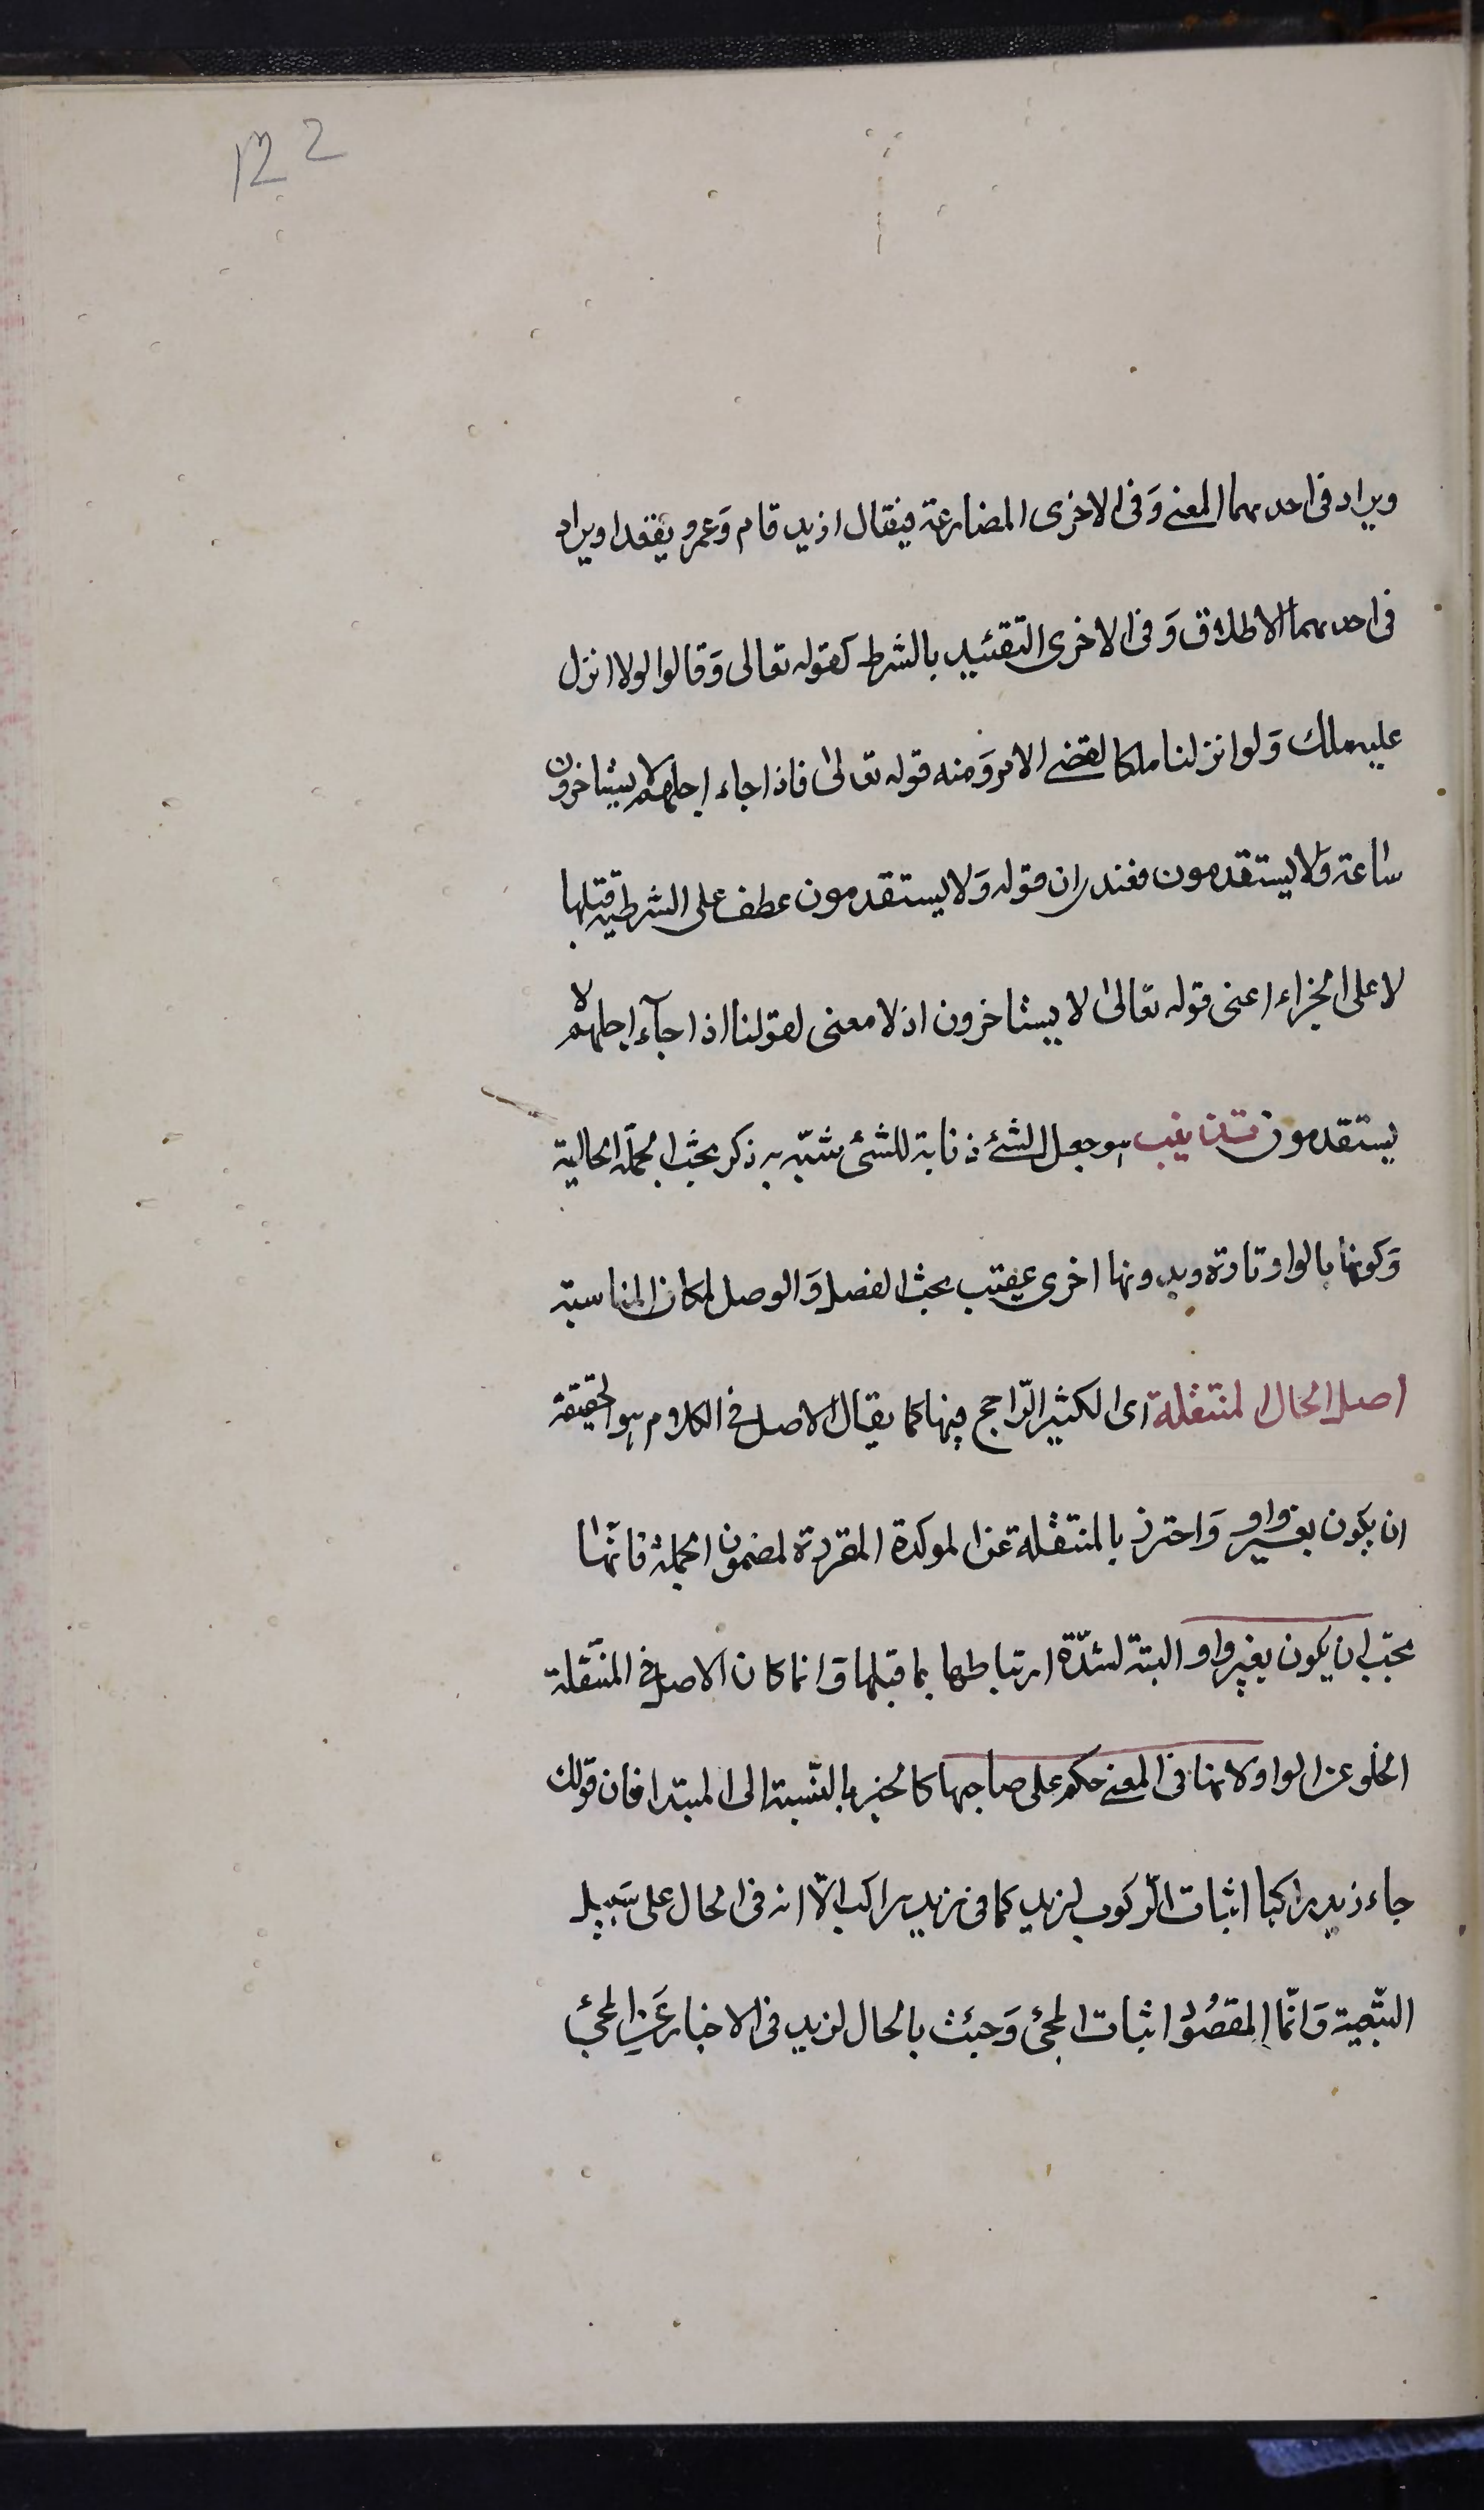 122
ويراد فى احدىهما المعنے وَفى الاخرى المضارعة فيقال ازيد قام وَعمرو يقعد او يراد
فى احدىهما الاطلاق وَفى الاخرى التقئيد بالشرط كقوله تعالى وَقالوا لولا انزل
عليه ملك وَلو انزلنا ملكا لقضے الامر وَمنه قوله تعالىٰ فاذا جاء اجلهم لا يستاخرون
ساعة وَلا يستقدمون فعندى ان قوله وَلا يستقدمون عطف على الشرطية قبلها
لا على الجزاء اعنى قوله تعالىٰ لا يستاخرون اذ لا معنى لقولنا اذا جآء اجلهم لا
يستقدمون تذنيب هو جعل الشئے ذنابة للشئ شبّه به ذكر بحث الجملة الحالية
وَكونها بالواو تارة وبدونها اخرى عقيب بحث الفصل وَالوصل لمكان المناسبة
اصل الحال المنتقلة اى الكثير الرّاجح فيها كما يقال الاصل فى الكلام هو الحقيقة
ان يكون بغير واو وَاحترز بالمنتقلة عن الموكدة المقررة لمضمون الجملة فانّها
يجب ان يكون بغير واو البتة لشدّة ارتباطها بما قبلها وَانما كان الاصل فى المنتقلة
الخلو عن الواو لانها فى المعنے حكم على صاحبها كالخبر بالنّسبة الى المبتدا فان قولك
جاء زيد راكبا اثبات الرّكوب لزيد كما فى زيد راكب الّا انه فى الحال على سَبيل
التبّعية وَانّما المقصُود اثبات المجئ وَجئت بالحال لزيد فى الاخبار عَن المجئ